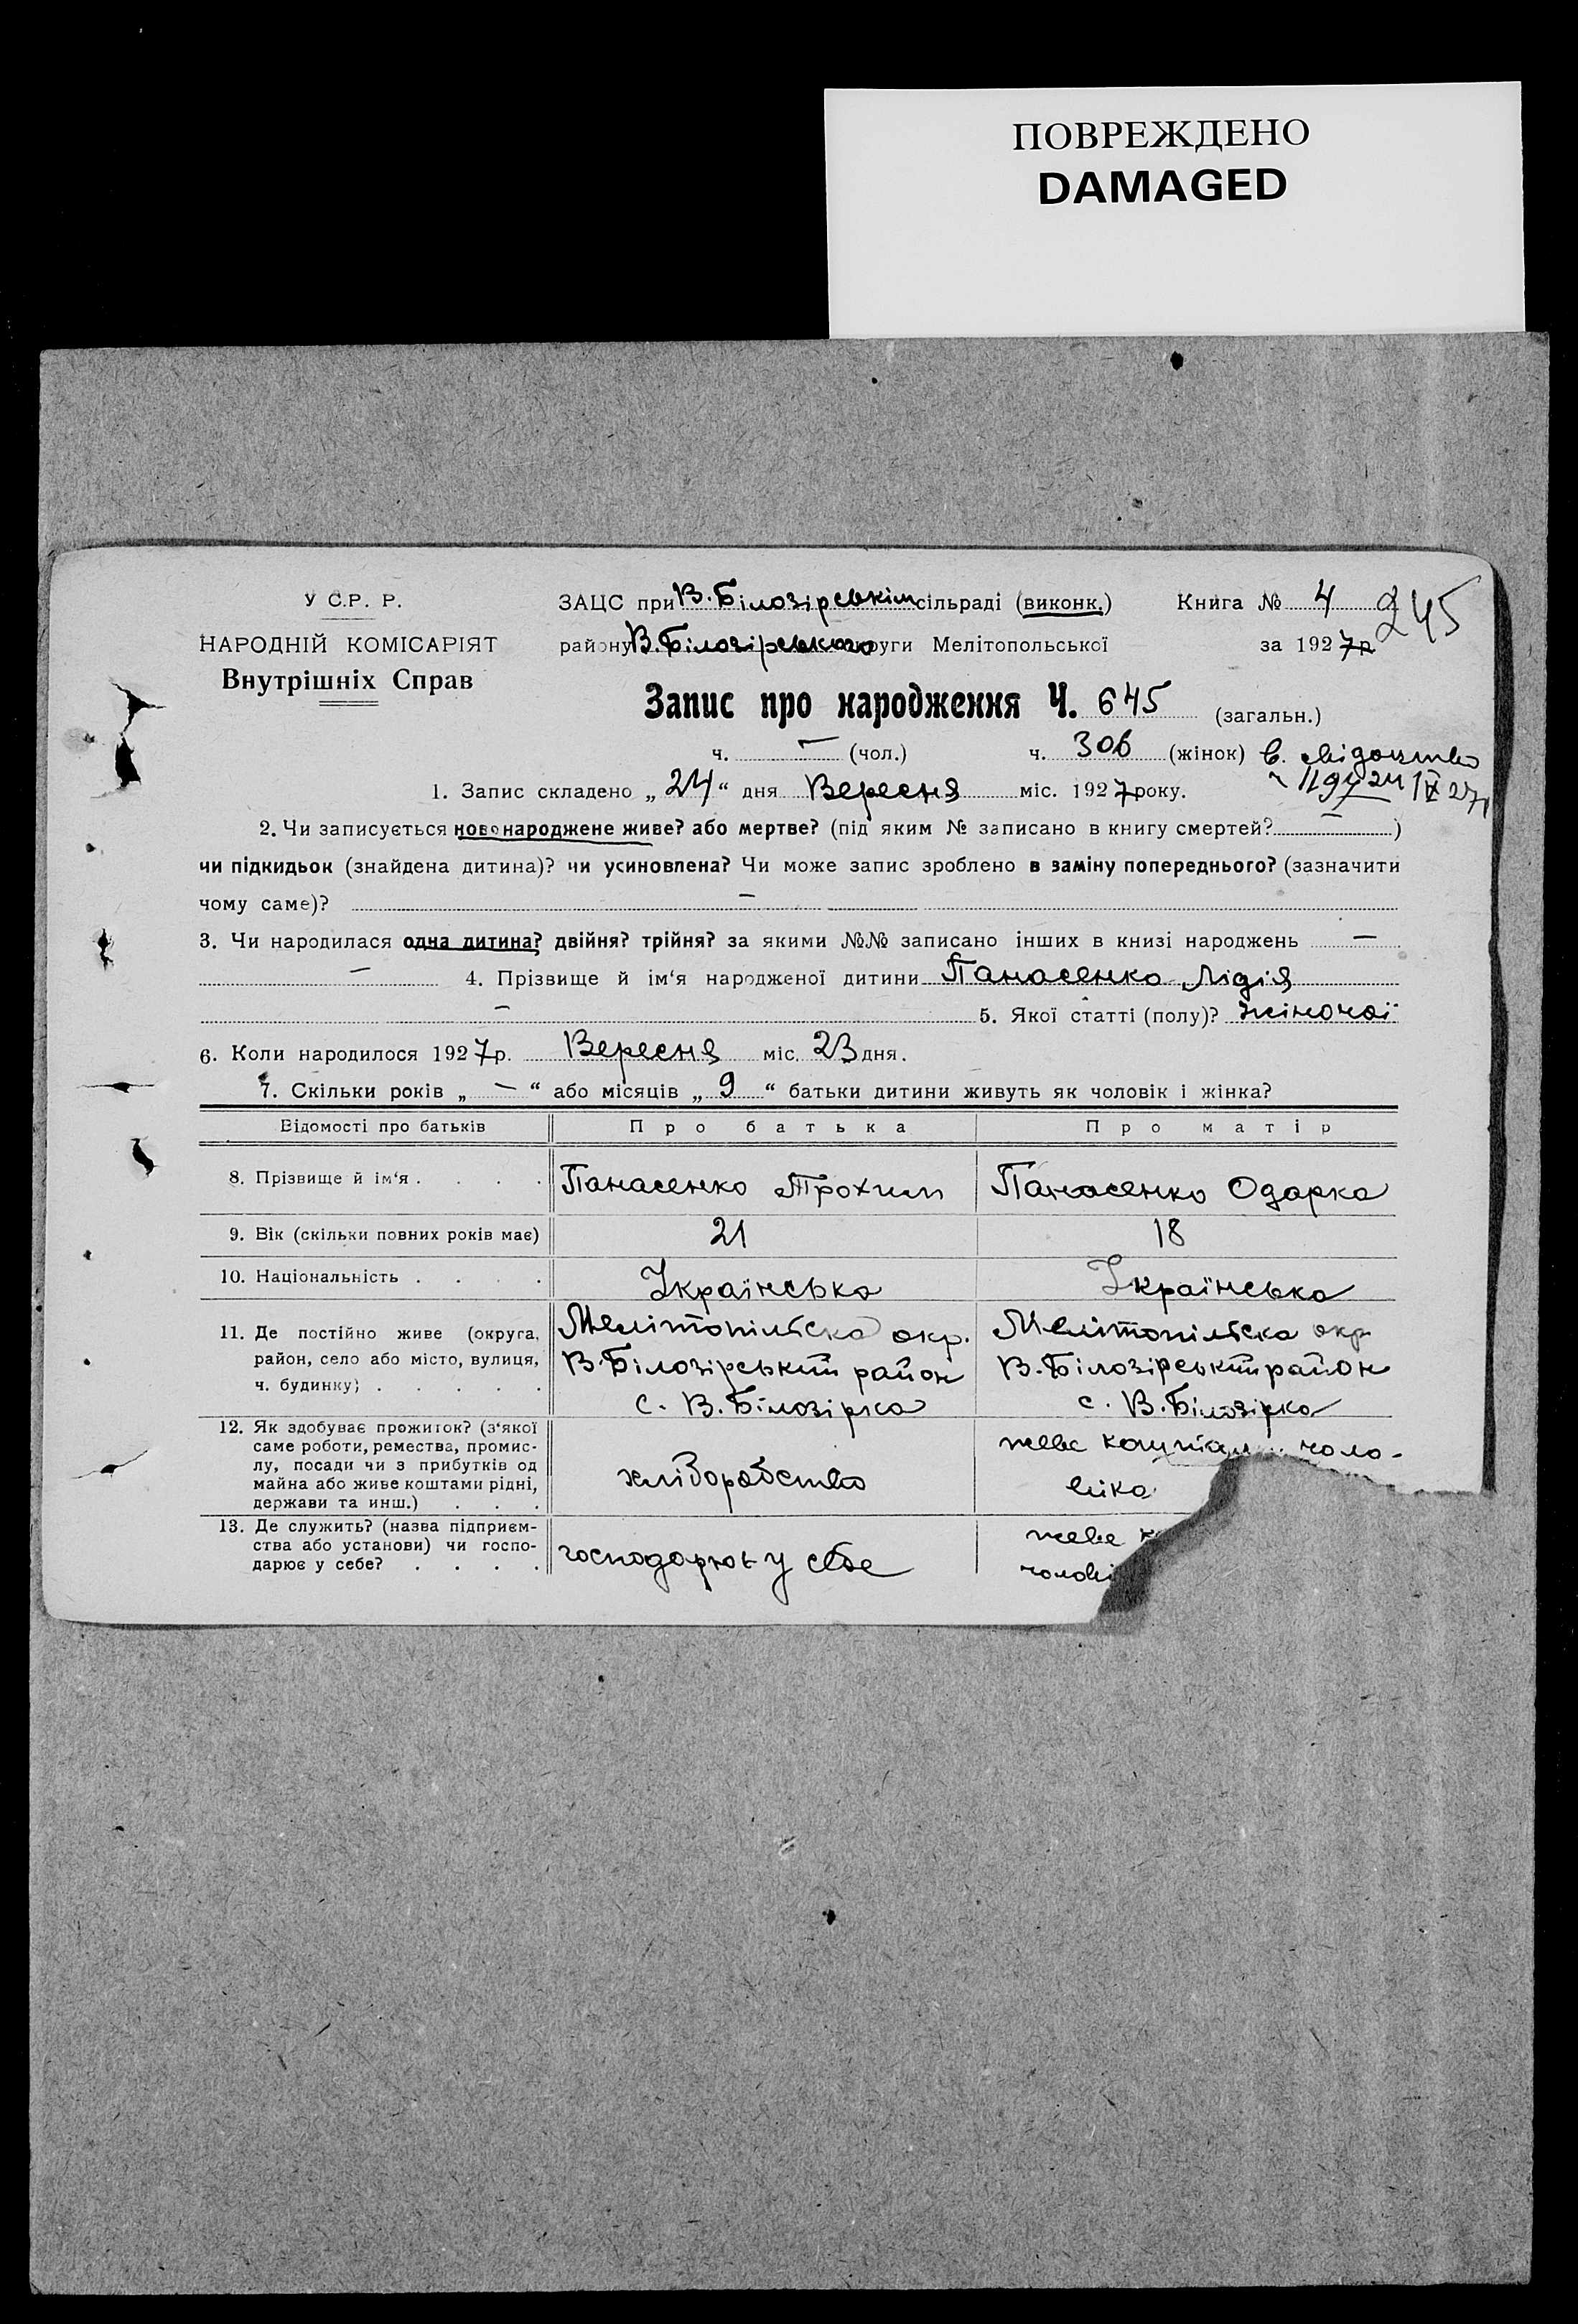 ПОВРЕЖДЕНО
DAMAGED
У С.Р. Р.
НАРОДНІЙ КОМІСАРІЯТ
Внутрішніх Справ
ЗАЦС при В. Білозірськім сільраді (виконк.)
району В. Білозірського округи Мелітопольської
Книга № 4
245
за 1927 р
Запис про народження Ч. 645 (загальн.)
ч. — (чол.) ч. 306 (жінок)
1197 24/IX 27
1. Запис складено „24“ дня Вересня міс. 1927 року.
2. Чи записується новонароджене живе? або мертве? (під яким № записано в книгу смертей? — )
чи підкидьок (знайдена дитина)? чи усиновлена? Чи може запис зроблено в заміну попереднього? (зазначити
чому саме)? —
3. Чи народилася одна дитина? двійня? трійня? за якими №№ записано інших в книзі народжень —
— 4. Прізвище й ім‘я народженої дитини Панасенко Лідія
— 5. Якої статті (полу)? жіночої
6. Коли народилося 1927 р. Вересня міс. 23 дня.
7. Скільки років „ — “ або місяців „ 9 “ батьки дитини живуть як чоловік і жінка?
Відомості про батьків Про батька Про матір
8. Прізвище й ім‘я . . . . Панасенко Трохим Панасенко Одарка
9. Вік (скільки повних років має) 21 18
10. Національність . . . . Українська Українська
11. Де постійно живе (округа,
район, село або місто, вулиця,
ч. будинку) . . . . .
Мелітопільска окр.
В. Білозірський район
с. В. Білозірка
Мелітопільска окр
В. Білозірський район
с. В. Білозірка
12. Як здобуває прожиток? (з‘якої
саме роботи, ремества, промис-
лу, посади чи з прибутків од
майна або живе коштами рідні,
держави та инш.) . . .
хліборобство
живе коштам чоло-
віка
13. Де служить? (назва підприєм-
ства або установи) чи госпо-
дарює у себе? . . . .
господарює у себе
живе к
чолові